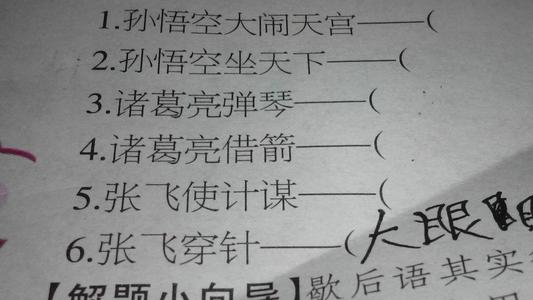 1.孙悟空大闹天宫——(
2.孙悟空坐天下——(
3.诸葛亮弹琴——(
4.诸葛亮借箭——(
5.张飞使计谋——(
6.张飞穿针——(大眼
【解题小向导】歇后语其实